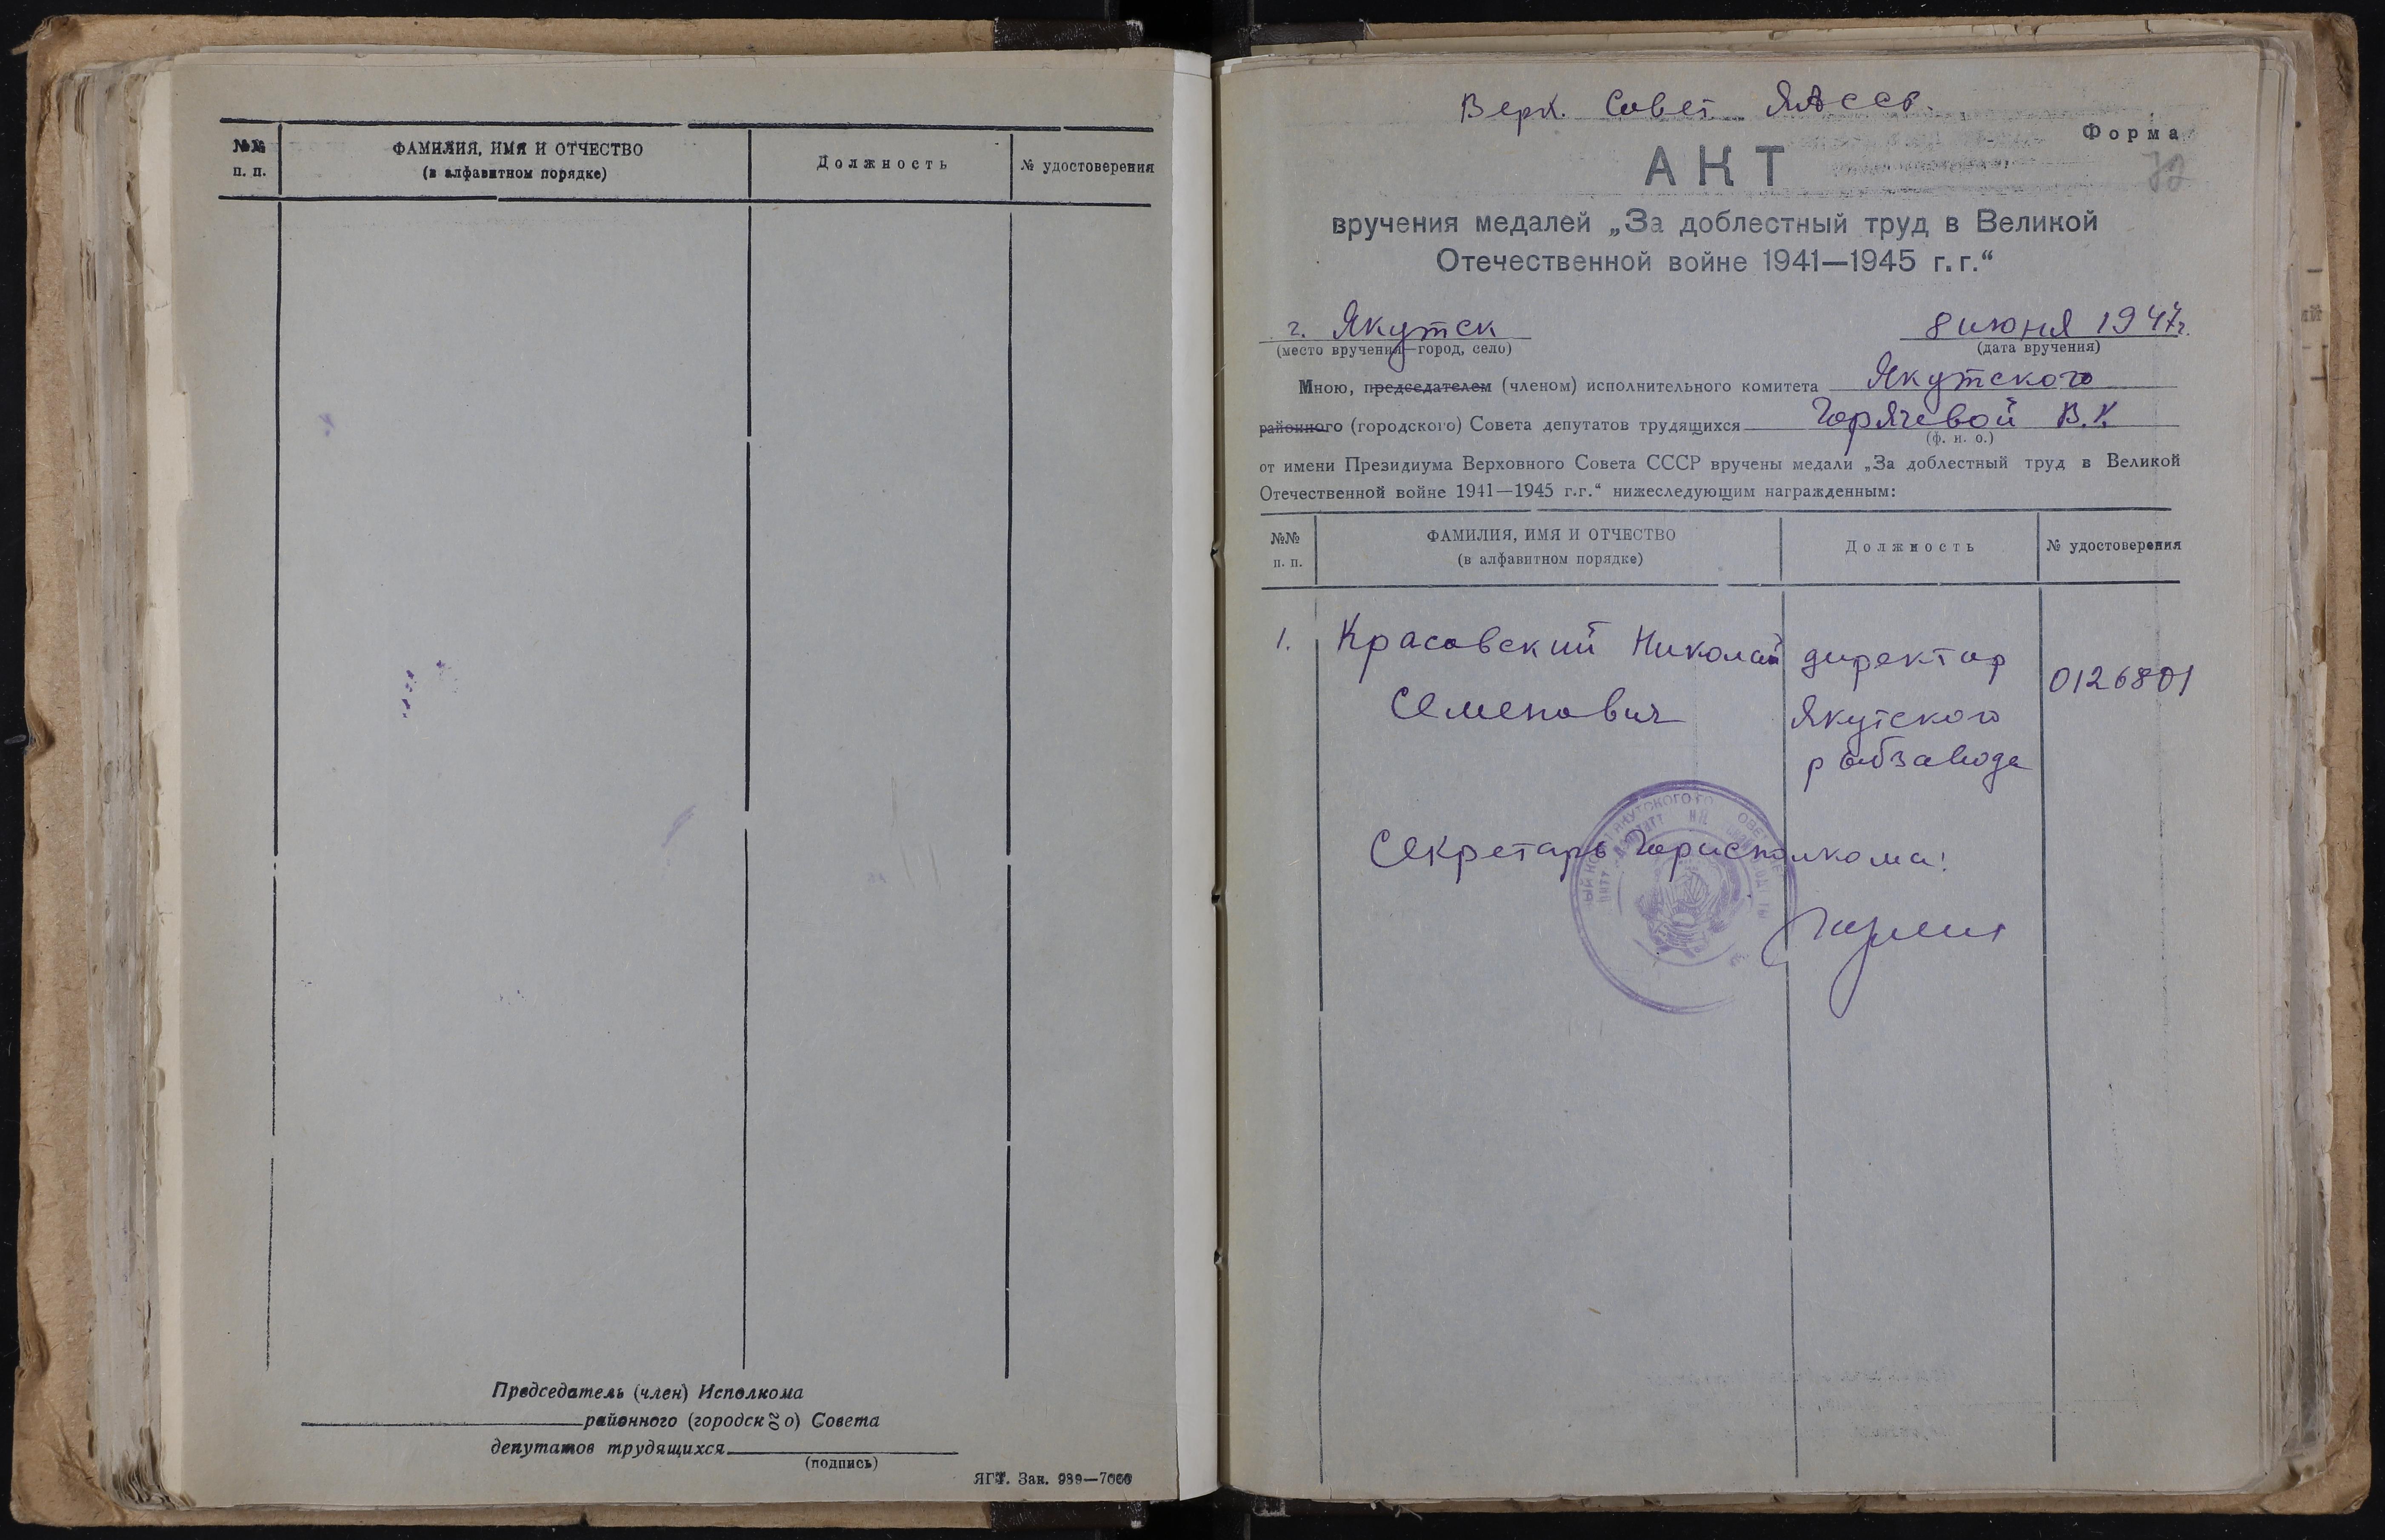 №№
п. п.
ФАМИЛИЯ, ИМЯ И ОТЧЕСТВО
(в алфавитном порядке)
Должность
№ удостоверения
Председатель (член) Исполкома
районного (городского) Совета
депутатов трудящихся
(подпись)
ЯГТ. Зак. 989—7000
Верх. Совет ЯАССР.
Форма
72
АКТ
вручения медалей „За доблестный труд в Великой
Отечественной войне 1941—1945 г.г.“
г. Якутск
8 июня 1947г.
(место вручения—город, село)
(дата вручения)
Мною, председателем (членом) исполнительного комитета Якутского
районного (городского) Совета депутатов трудящихся Горячевой В.К.
(ф. и. о.)
от имени Президиума Верховного Совета СССР вручены медали „За доблестный труд в Великой
Отечественной войне 1941—1945 г.г.“ нижеследующим награжденным:
№№
п. п.
ФАМИЛИЯ, ИМЯ И ОТЧЕСТВО
(в алфавитном порядке)
Должность
№ удостоверения
1. Красовский Николай директор
0126801
Семенович Якутского
рыбзавода
Секретарь Горисполкома: